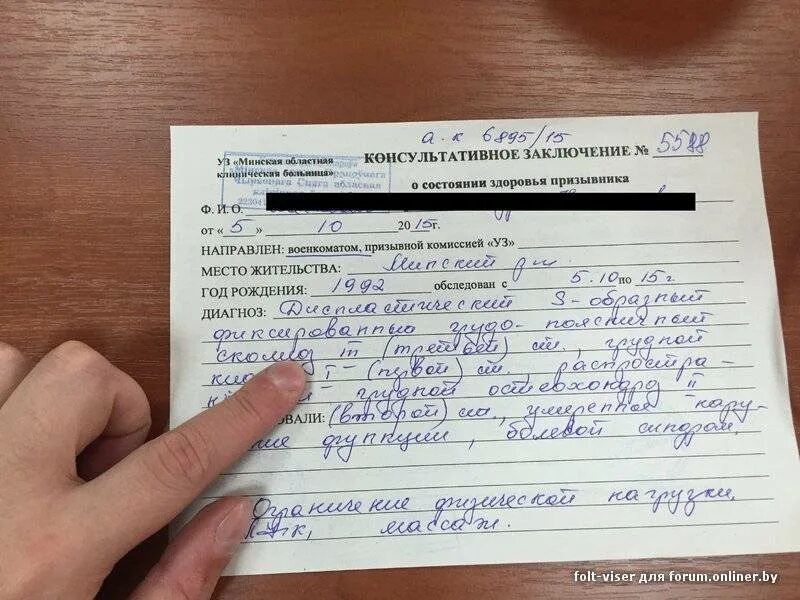 а.к 6895/15
УЗ «Минская областная
клиническая больница»
КОНСУЛЬТАТИВНОЕ ЗАКЛЮЧЕНИЕ № 5588
о состоянии здоровья призывника
Ф. И. О.
от « 5 » 10 2015г.
НАПРАВЛЕН: военкоматом, призывной комиссией «УЗ»
МЕСТО ЖИТЕЛЬСТВА: Минский р-н
ГОД РОЖДЕНИЯ: 1992 обследован с 5.10 по 15 г
ДИАГНОЗ: Диспластический S-образный
фиксированный грудо-поясничный
сколиоз III (третьей) ст., грудной
I (первой) ст., распростра-
грудной остеохондроз II
ОВАЛИ: (второй) ст., умеренное нару-
ние функции, болевой синдром.
Ограничение физической нагрузки,
ЛФК, массаж.
folt-viser для forum.onliner.by